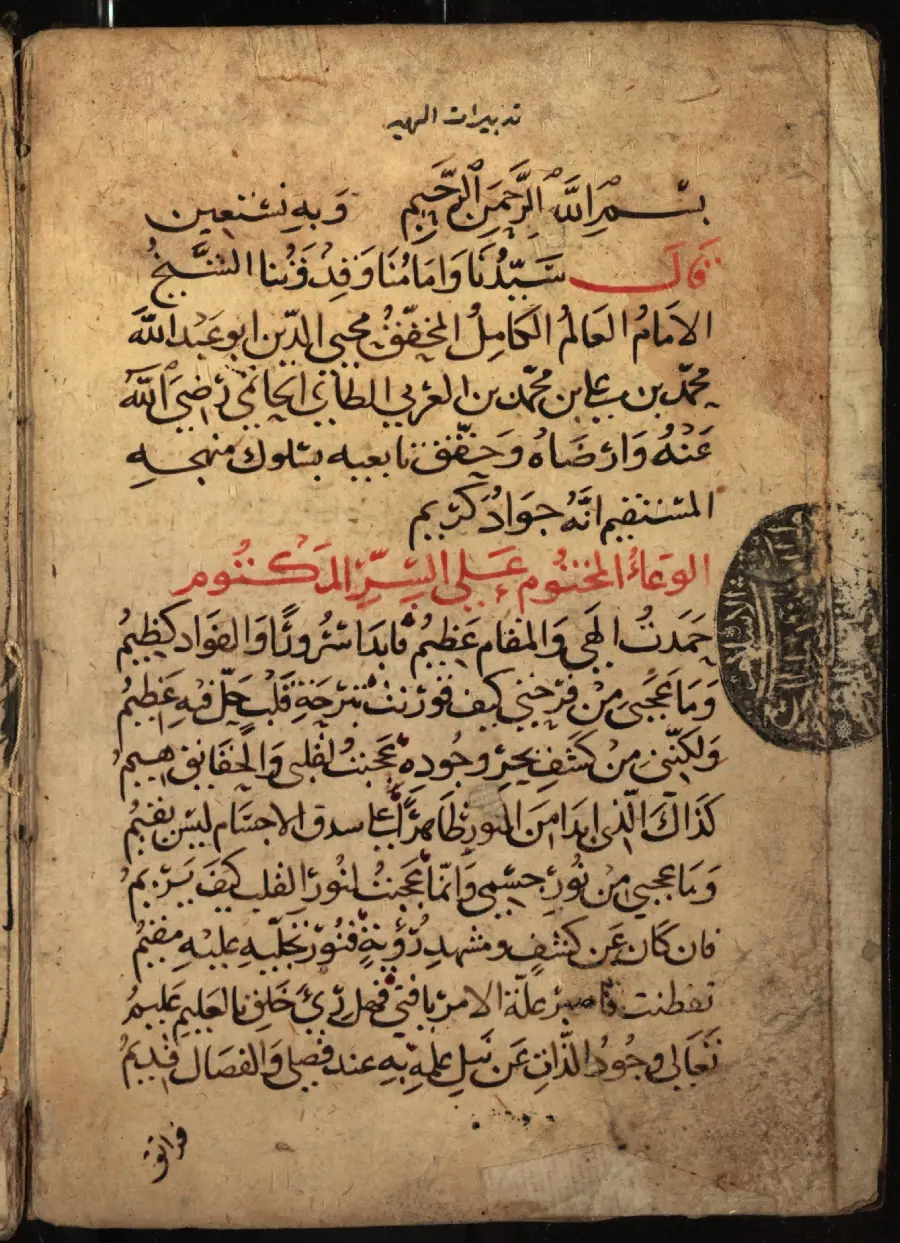 تدبيرات الهيه
بسم الله الرحمن الرحيم وبه نستعين
قال سيدنا وامامنا وقدوتنا الشيخ
الامام العالم الكامل المحقق محيي الدين ابو عبد الله
محمد بن علي بن محمد بن العربي الطائي الحاتمي رضي الله
عنه وارضاه وحقق تابعيه بسلوك منهجه
المستقيم انه جواد كريم
الوعاء المختوم على السر المكتوم
حمدت الهي والمقام عظيم فابدا سرورا والفواد كظيم
وما عجبي من فرحتي كيف قورنت بترحة قلب حل فيه عظيم
ولكنني من كشف بحر وجوده عجبت لقلبي والحقائق هيم
كذاك الذي ابدا من النور ظاهرا على سدق الاجسام ليس يقيم
وما عجبي من نور جسمي وانما عجبت لنور القلب كيف يريم
فان كان عن كشف ومشهد رؤية فنور تجليه عليه مقيم
تفطنت فاصبر علة الامر يافتى فهل زي خلق بالعليم عليم
تعالى وجود الذات عن نيل علمه به عند فصلي والفصال قديم
فوانق